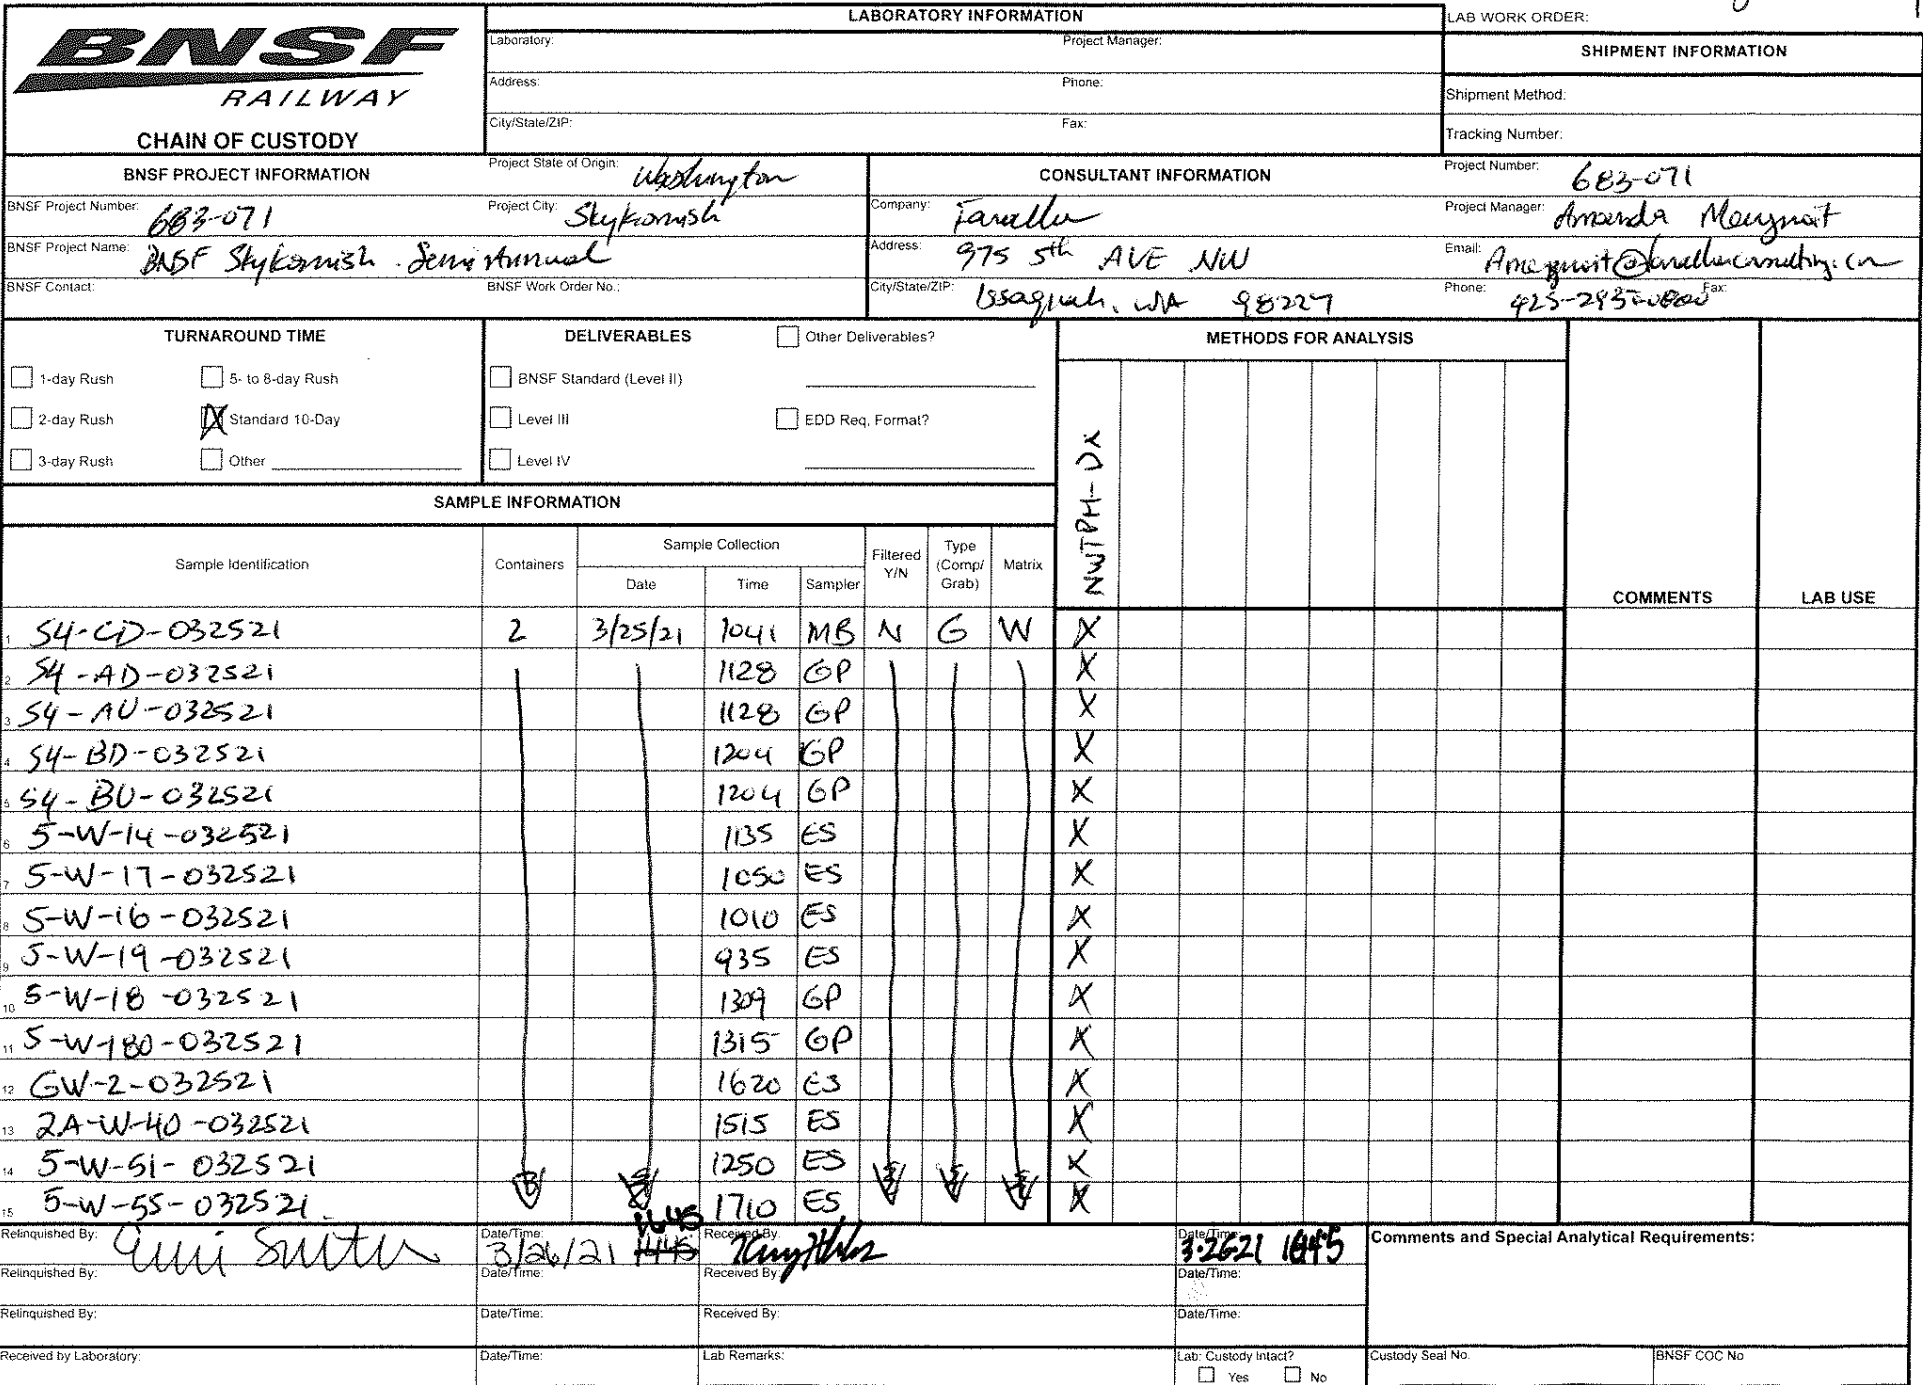 BNSF
RAILWAY
CHAIN OF CUSTODY
LABORATORY INFORMATION
Laboratory: Project Manager:
Address: Phone:
City/State/ZIP: Fax:
LAB WORK ORDER:
SHIPMENT INFORMATION
Shipment Method:
Tracking Number:
BNSF PROJECT INFORMATION
Project State of Origin: Washington
BNSF Project Number: 683-071
Project City: Skykomish
BNSF Project Name: BNSF Skykomish Semi Annual
BNSF Contact: BNSF Work Order No.:
CONSULTANT INFORMATION
Project Number: 683-071
Company: Farallon
Project Manager: Amanda
Address: 975 5th AVE NW
Email:
City/State/ZIP: Issaquah, WA 98227
Phone: Fax:
TURNAROUND TIME
1-day Rush 5- to 8-day Rush
2-day Rush X Standard 10-Day
3-day Rush Other
DELIVERABLES
Other Deliverables?
BNSF Standard (Level II)
Level III EDD Req, Format?
Level IV
METHODS FOR ANALYSIS
NWTPH-Dx
COMMENTS
LAB USE
SAMPLE INFORMATION
Sample Identification Containers Sample Collection Filtered Y/N Type (Comp/Grab) Matrix
Date Time Sampler
1 S4-CD-032521 2 3/25/21 1041 MB N G W X
2 S4-AD-032521 1128 GP X
3 S4-AU-032521 1128 GP X
4 S4-BD-032521 1204 GP X
5 S4-BU-032521 1204 GP X
6 5-W-14-032521 1135 ES X
7 5-W-17-032521 1050 ES X
8 5-W-16-032521 1010 ES X
9 5-W-19-032521 935 ES X
10 5-W-18-032521 1309 GP X
11 5-W-180-032521 1315 GP X
12 GW-2-032521 1620 ES X
13 2A-W-40-032521 1515 ES X
14 5-W-51-032521 1250 ES X
15 5-W-55-032521 1710 ES X
Relinquished By: Date/Time: 3/26/21 1645 Received By: Date/Time: 3-26-21 1645
Comments and Special Analytical Requirements:
Relinquished By: Date/Time: Received By: Date/Time:
Relinquished By: Date/Time: Received By: Date/Time:
Received by Laboratory: Date/Time: Lab Remarks: Lab: Custody Intact? Custody Seal No. BNSF COC No
Yes No